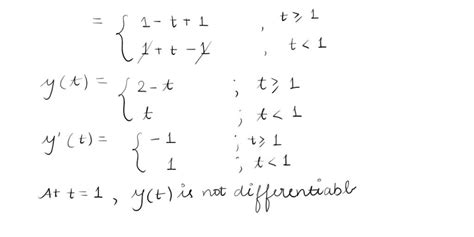 = { 1 - t + 1 , t ≥ 1
1 + t - 1 , t < 1
y(t) = { 2 - t ; t ≥ 1
t ; t < 1
y'(t) = { -1 ; t ≥ 1
1 ; t < 1
At t = 1, y(t) is not differentiable